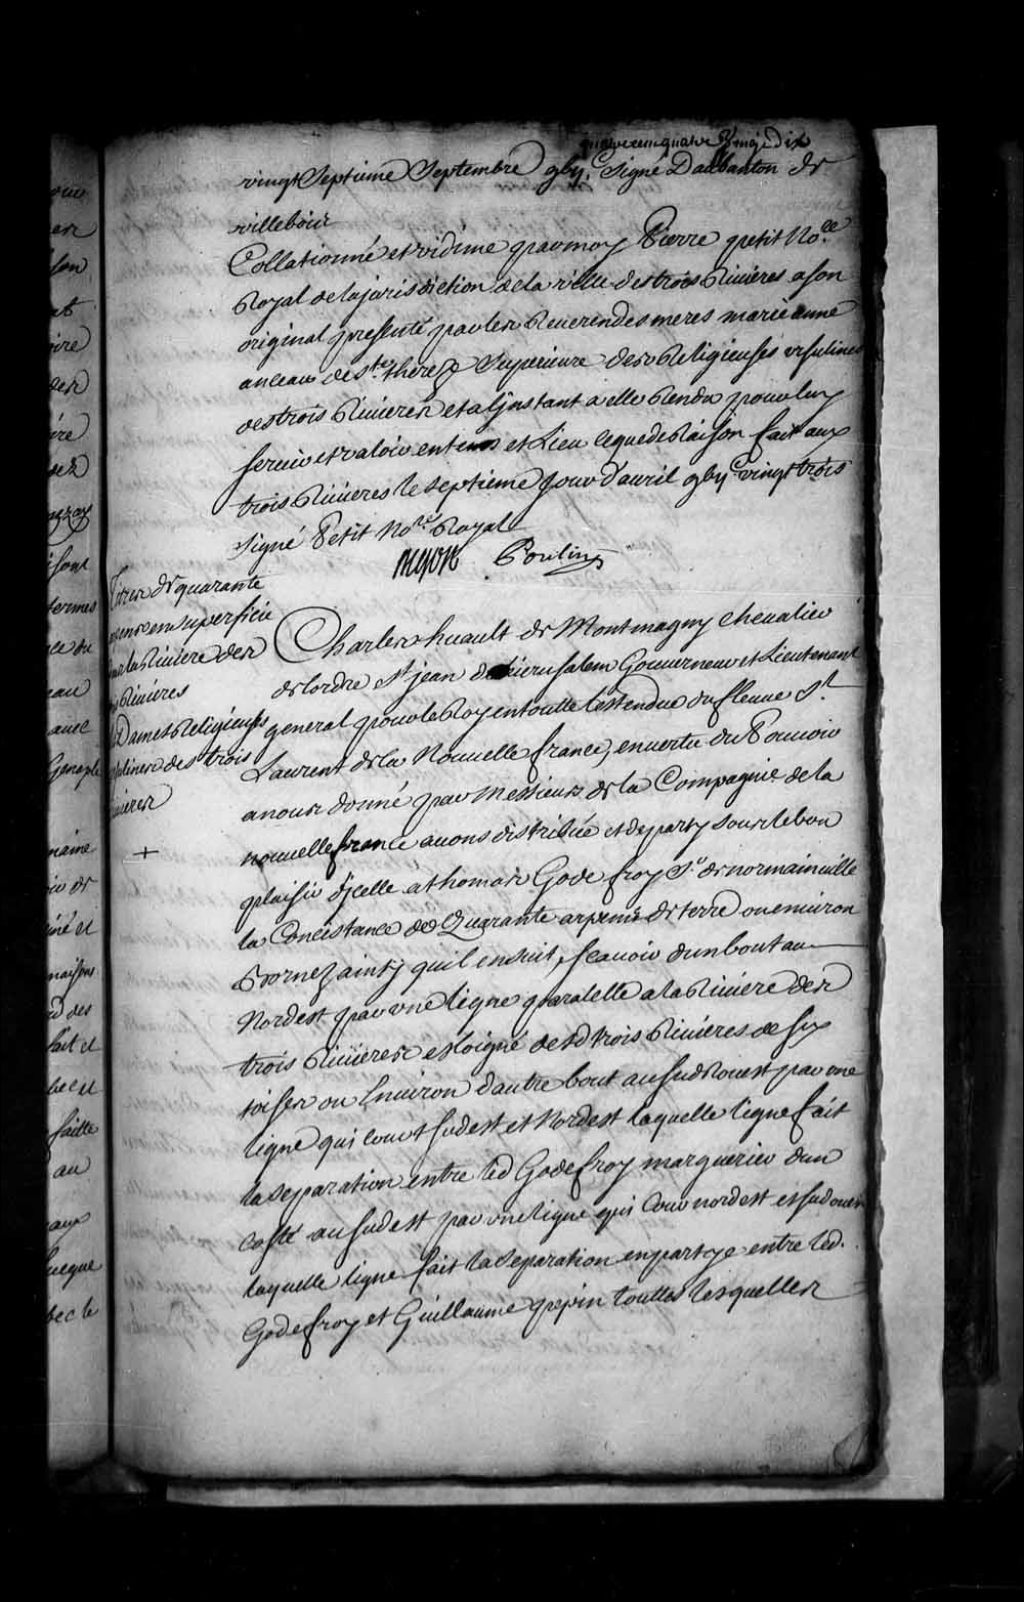 quatre cent quatre Vingt Dix
vingt Septieme Septembre gby.c Signé Dallbanton de
villebois
Collationné et vidimé par moy Pierre petit No.re
Royal de la jurisdiction de la ville des trois Rivieres a son
original presenté par les Reverendes meres marie anne
anceau de S.te therez Superieure des Religieuses ursulines
des trois Rivieres et a l'jnstant a elle Rendu pour luy
servir et valoir en tems et Lieu ce que de Raison fait aux
trois Rivieres le septieme jour d'auril gbyc vingt trois
Signé Petit No.re Royal
Poulin
Terres de quarante
en superficie
la Riviere des
Rivieres
Dames Religieuses
des trois
Charles huault de Montmagny chevalier
de lordre St jean de hierusalem Gouverneur et Lieutenant
general pour le Roy en toutte l'estendue du fleuve St
Laurent de la Nouvelle france, en vertu du Pouvoir
a nous donné par Messieurs de la Compagnie de la
nouvelle france avons distribué et departy sous le bon
plaisir djcelle a thomas Godefroy Sr de normainville
la Concistance de Quarante arpens de terre ou environ
Bornez ainsy quil ensuit, scavoir dun bout au
Nordest par une ligne paralelle a la Riviere des
trois Rivieres esloigné desd trois Rivieres de six
toises ou Environ dautre bout au sudRouest par une
ligne qui court sudest et Nordest laquelle ligne fait
la separation entre led Godefroy marguerier dun
costé au sudest par une ligne qui Cour nordest et sudouest
laquelle ligne fait la separation en partye entre led.
Godefroy et Guillaume pepin touttes lesquelles
+